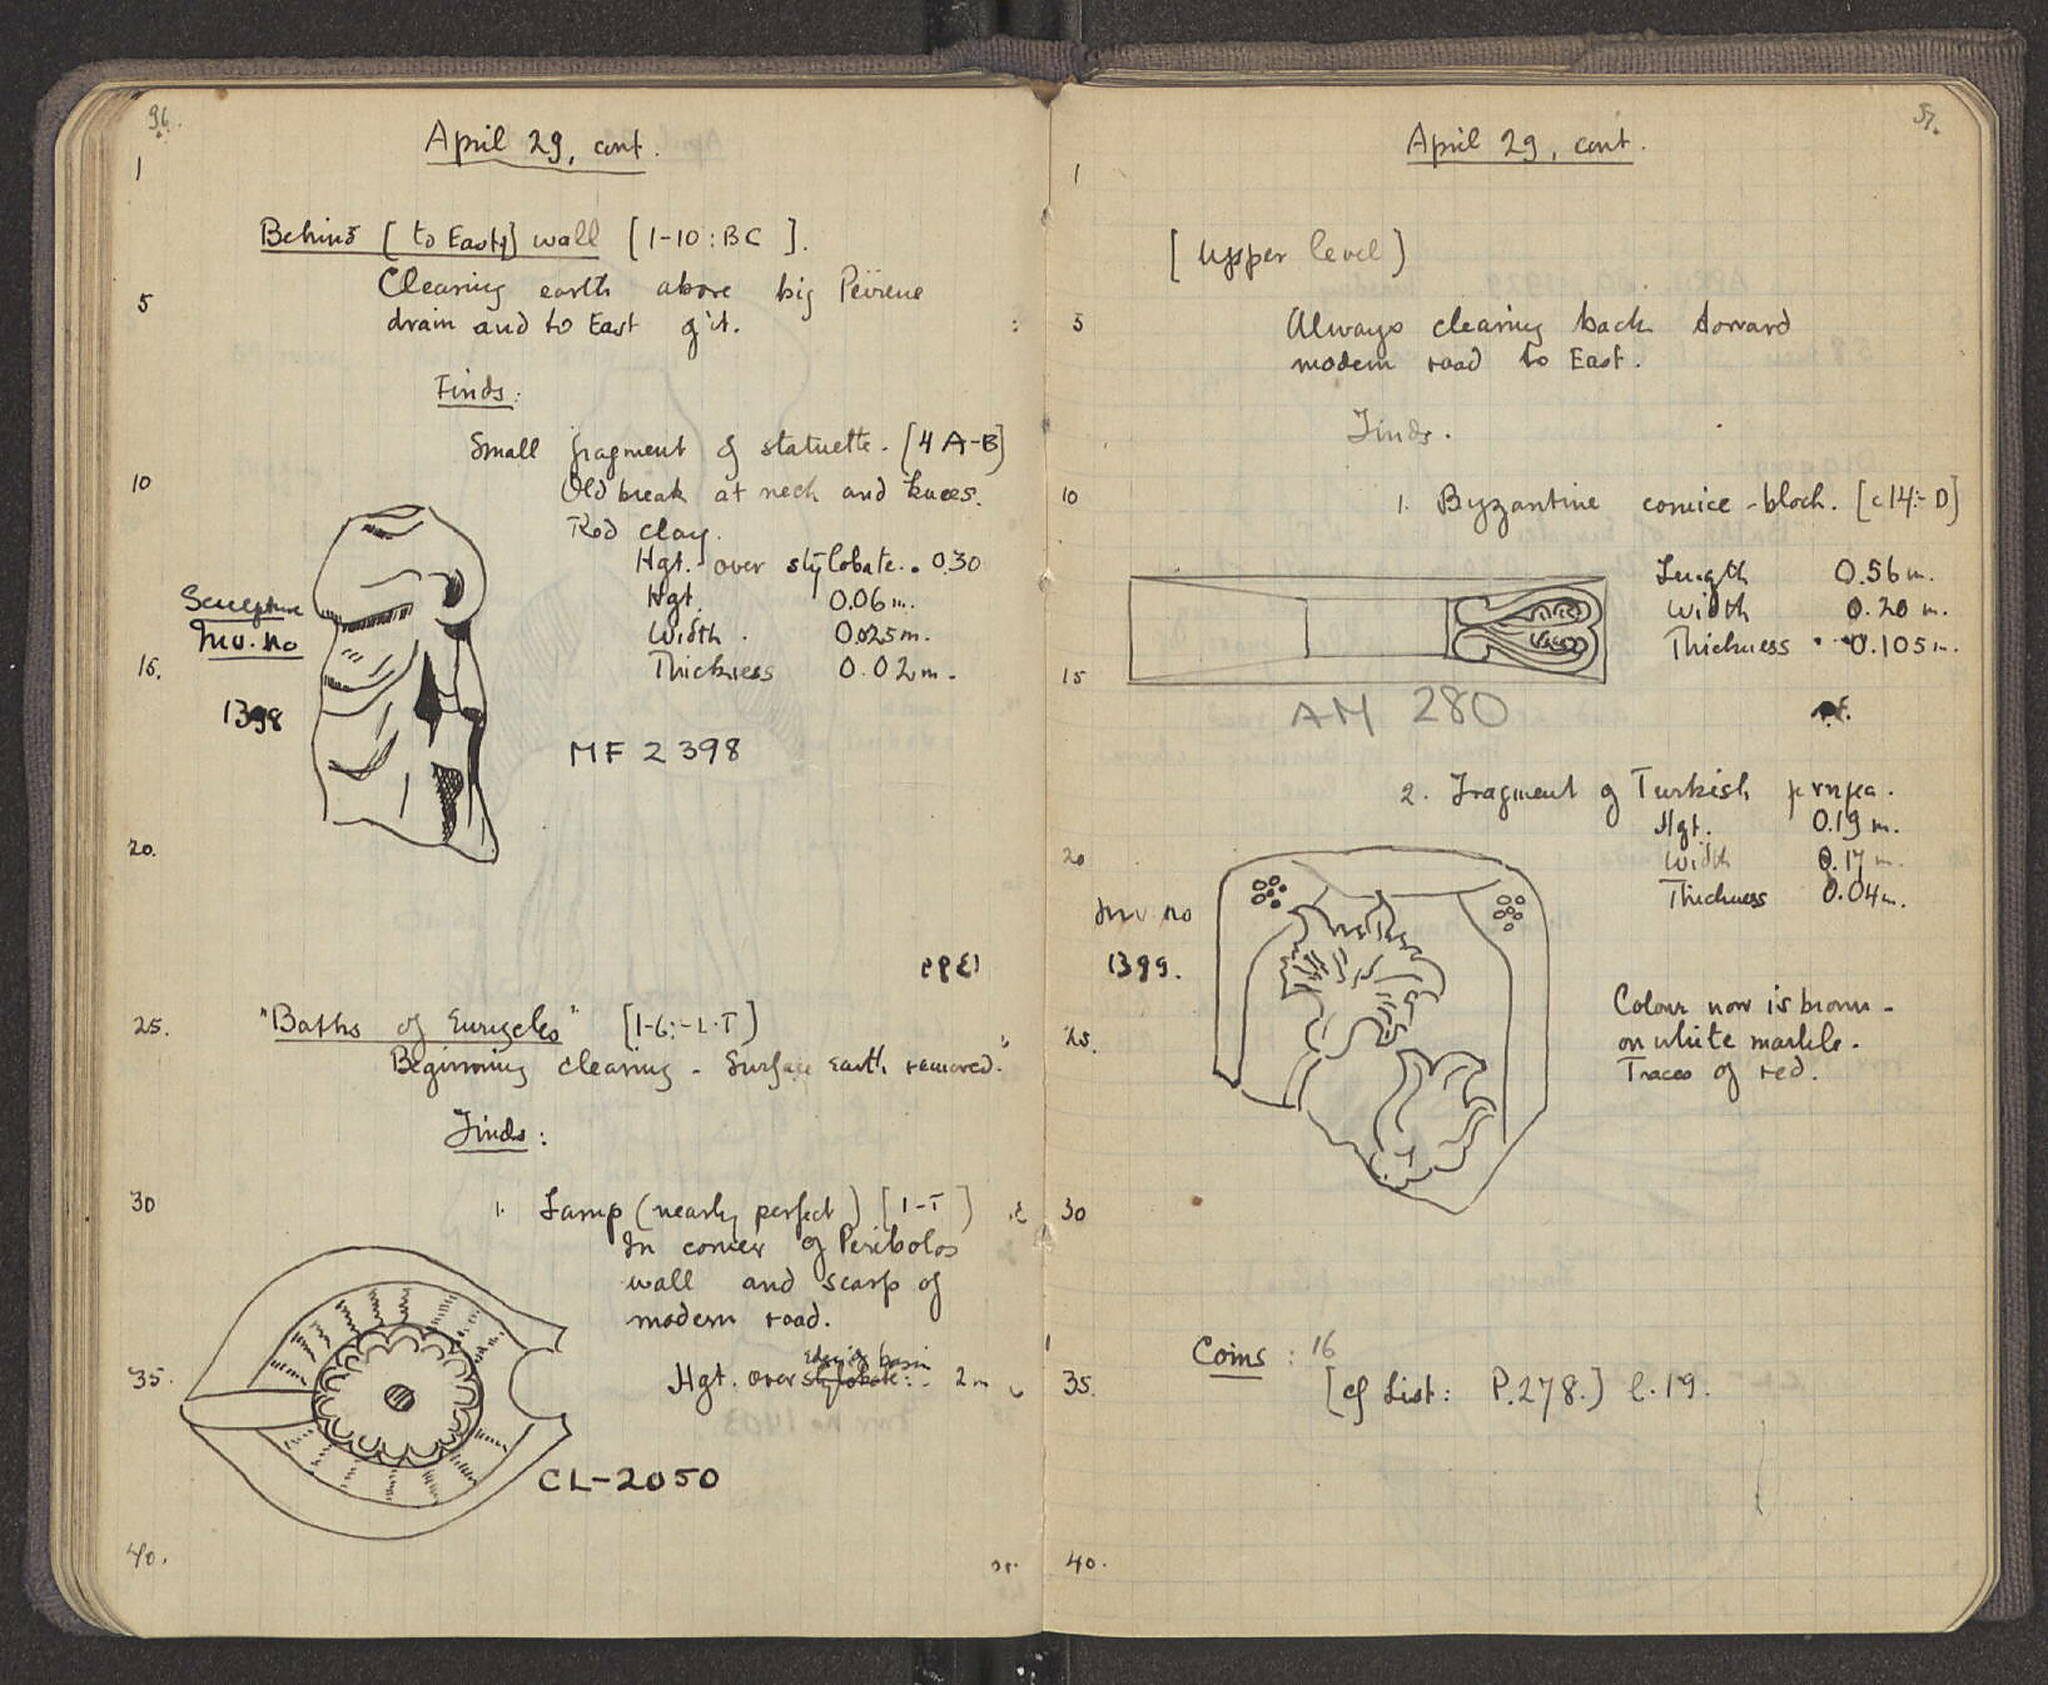 96.
April 29, cont.
1
Behind [to East] wall [1-10:BC].
Clearing earth above big Peirene
5
drain and to East of it.
Finds:
Small fragment of statuette. [4 A-B]
10
Old break at neck and knees.
Red clay.
Hgt. over stylobate.. 0.30
Hgt. 0.06 m.
Width. 0.025 m.
Thickness 0.02 m.
Sculpture
Inv. no
15.
1398
MF 2398
20.
25.
"Baths of Eurycles" [1-6:-L-T]
Beginning clearing - Surface earth removed.
Finds:
30
1. Lamp (nearly perfect) [1-T]
In corner of Peribolos
wall and scarp of
modern road.
35.
Hgt. over stylobate: edge of basin 2 m
CL-2050
40.
57.
April 29, cont.
1
[upper level]
5
Always clearing back toward
modern road to East.
Finds.
10
1. Byzantine cornice-block. [c14:-D]
Length 0.56 m.
Width 0.20 m.
Thickness 0.105 m.
15
AM 280
2. Fragment of Turkish μνημα.
Hgt. 0.19 m.
20
Width 0.17 m.
Thickness 0.04 m.
Inv. no
1399.
Colour now is brown -
25.
on white marble.
Traces of red.
30
Coins: 16
35.
[cf List: P.278.] l.19.
40.